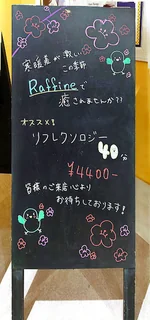 寒暖差が激しい
この季節
Raffineで
癒されませんか??
オススメ!
リフレクソロジー
40分
¥4400-
皆様のご来店心より
お待ちしております!